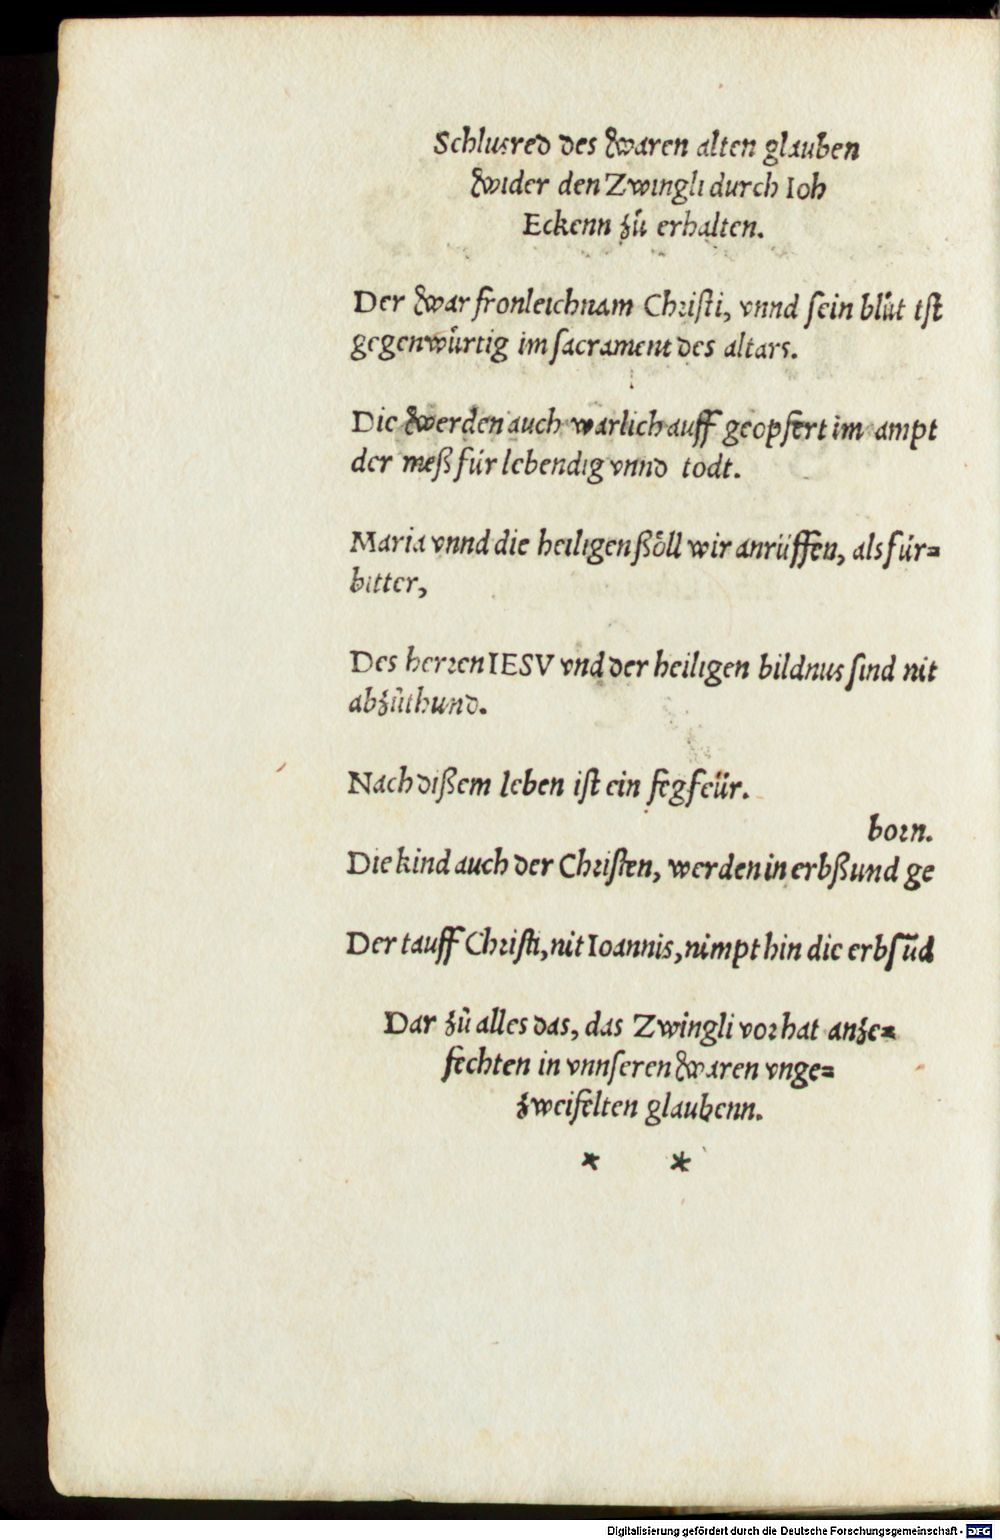 Schlusred des waren alten glauben
wider den Zwingli durch Ioh
Eckenn zů erhalten.
Der war fronleichnam Chꝛiſti, vnnd ſein blůt iſt
gegenwürtig im ſacrament des altars.
Die werden auch warlich auff geopfert im ampt
der meß für lebendig vnnd todt.
Maria vnnd die heiligen ßöll wir anrüffen, als für⸗
bitter,
Des herꝛen IESV vnd der heiligen bildnus ſind nit
abzůthund.
Nach dißem leben iſt ein fegfeür.
boꝛn.
Die kind auch der Chꝛiſten, werden in erbßund ge
Der tauff Chꝛiſti, nit Ioannis, nimpt hin die erbſūd
Dar zů alles das, das Zwingli voꝛhat anze⸗
fechten in vnnſeren waren vnge⸗
zweifelten glaubenn.
* *
Digitalisierung gefördert durch die Deutsche Forschungsgemeinschaft - DFG